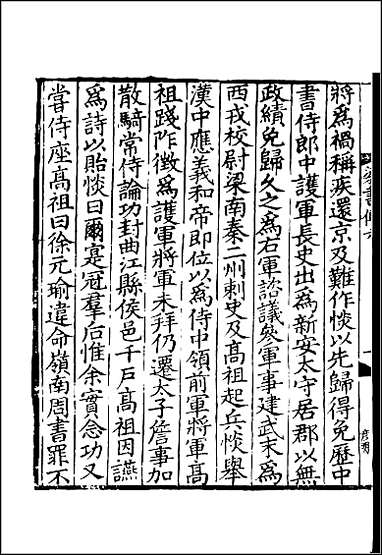 將爲禍稱疾還京及難作惔以先歸得免歷中
書侍郎中護軍長史出爲新安太守居郡以無
政績免歸久之爲右軍諮議參軍事建武末爲
西戎校尉梁南秦二州刺史及高祖起兵惔舉
漢中應義和帝即位以爲侍中領前軍將軍高
祖踐阼徵爲護軍將軍未拜仍遷太子詹事加
散騎常侍論功封曲江縣侯邑千戸高祖因讌
爲詩以貽惔曰爾寔冠羣后惟余實念功又
嘗侍座高祖曰徐元瑜違命嶺南周書罪不